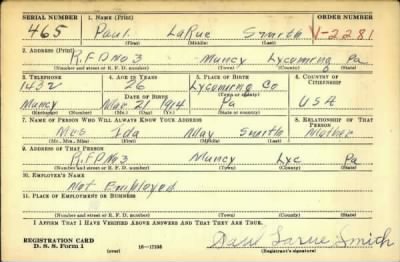 SERIAL NUMBER 1. NAME (Print) ORDER NUMBER
465 Paul LaRue Smith V-2281
(First) (Middle) (Last)
2. ADDRESS (Print)
R.F.D No 3 Muncy Lycoming Pa
(Number and street or R. F. D. number) (Town) (County) (State)
3. TELEPHONE 4. AGE IN YEARS 5. PLACE OF BIRTH 6. COUNTRY OF CITIZENSHIP
1432 26 Lycoming Co
(Town or county)
DATE OF BIRTH
Muncy Mar 21 1914 Pa USA
(Exchange) (Number) (Mo.) (Day) (Yr.) (State or country)
7. NAME OF PERSON WHO WILL ALWAYS KNOW YOUR ADDRESS 8. RELATIONSHIP OF THAT PERSON
Mrs Ida May Smith Mother
(Mr., Mrs., Miss) (First) (Middle) (Last)
9. ADDRESS OF THAT PERSON
R.F.D No3 Muncy Lyc Pa
(Number and street or R. F. D. number) (Town) (County) (State)
10. EMPLOYER'S NAME
Not Employed
11. PLACE OF EMPLOYMENT OR BUSINESS
(Number and street or R. F. D. number) (Town) (County) (State)
I AFFIRM THAT I HAVE VERIFIED ABOVE ANSWERS AND THAT THEY ARE TRUE.
REGISTRATION CARD
D. S. S. Form 1 (over) 16—17105 Paul Larue Smith
(Registrant's signature)